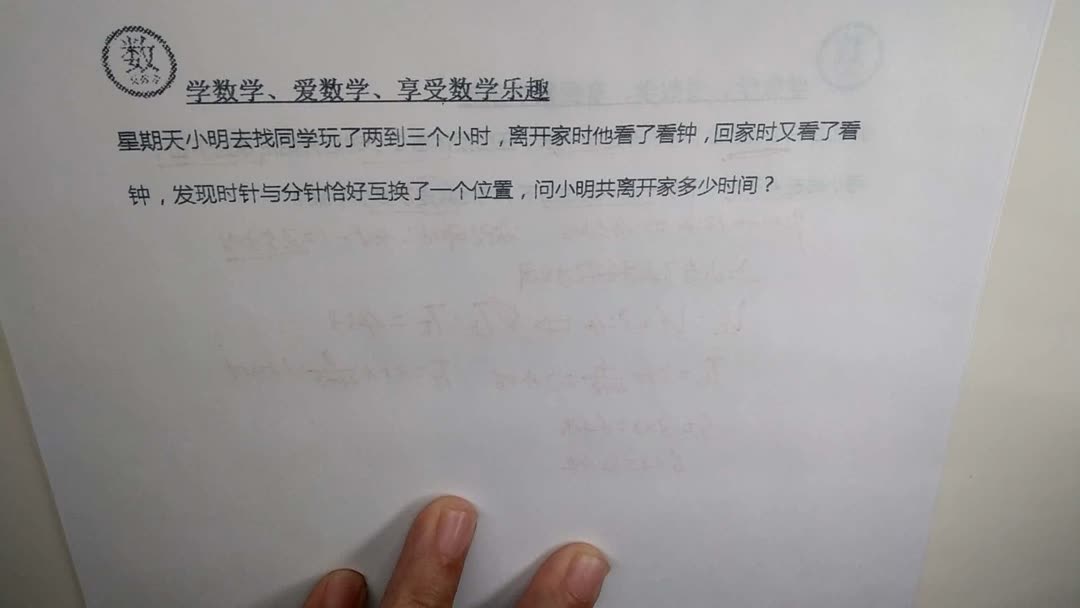 数
学数学、爱数学、享受数学乐趣
星期天小明去找同学玩了两到三个小时，离开家时他看了看钟，回家时又看了看
钟，发现时针与分针恰好互换了一个位置，问小明共离开家多少时间？